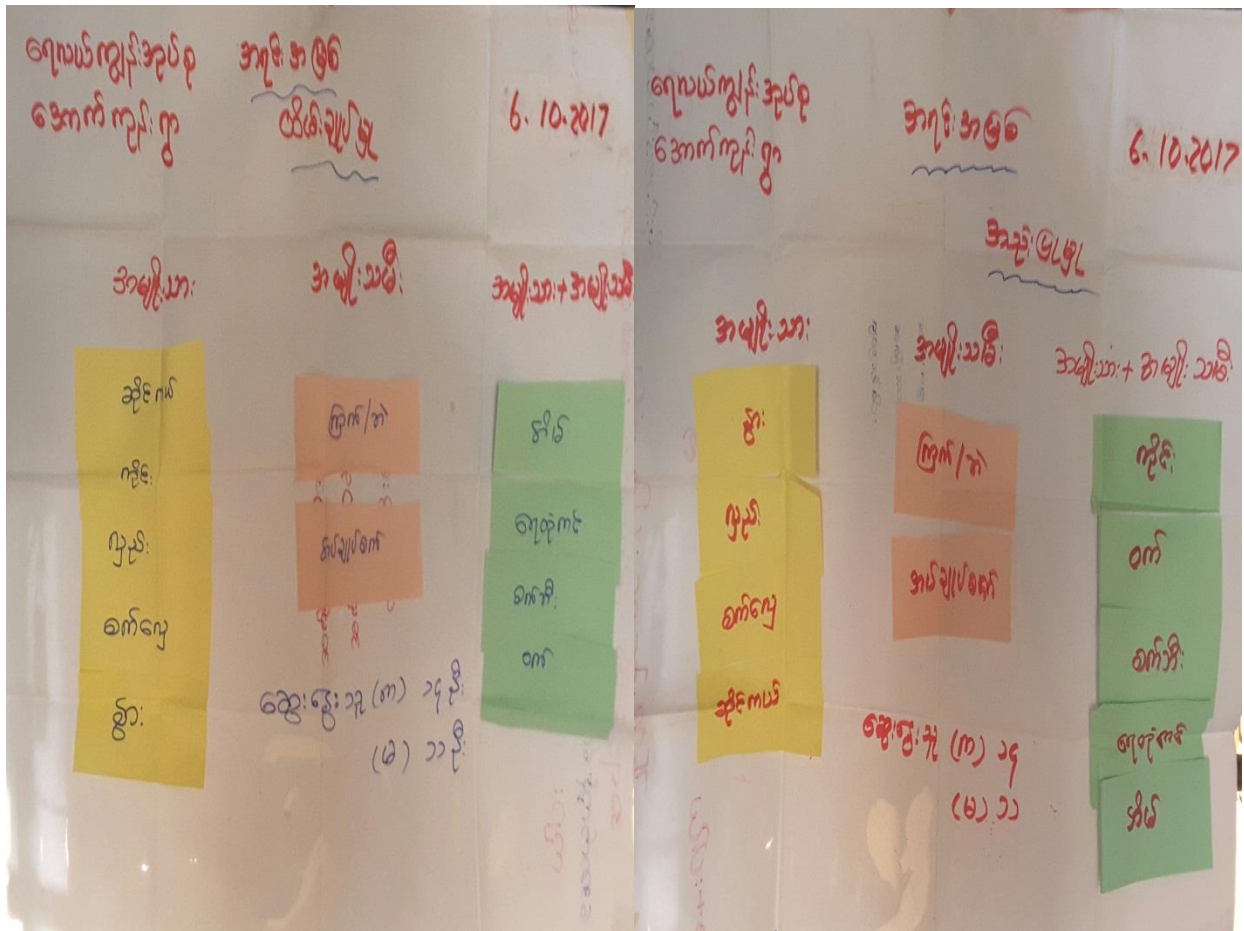 ရေလယ်ကျွန်းအုပ်စု
အောက်ကျင်းရွာ
အရင်းအမြစ်
ထိမ်းချုပ်မှု
6.10.2017
အမျိုးသား
အမျိုးသမီး
အမျိုးသား+အမျိုးသမီး
ဆိုင်ကယ်
ကိုင်း
လှည်း
စက်လှေ
နွား
ကြက်/ဘဲ
အပ်ချုပ်စက်
အိမ်
ရေတုံကင်
စက်ဘီး
ဝက်
ဆွေးနွေးသူ (က) ၁၄ဦး
(မ) ၁၁ဦး
ရေလယ်ကျွန်းအုပ်စု
အောက်ကျင်းရွာ
အရင်းအမြစ်
6.10.2017
အသုံးပြုမှု
အမျိုးသား
အမျိုးသမီး
အမျိုးသား+အမျိုးသမီး
နွား
လှည်း
စက်လှေ
ဆိုင်ကယ်
ကြက်/ဘဲ
အပ်ချုပ်စက်
ကိုင်း
ဝက်
စက်ဘီး
ရေတုံကင်
အိမ်
ဆွေးနွေးသူ (က) ၁၄
(မ) ၁၁